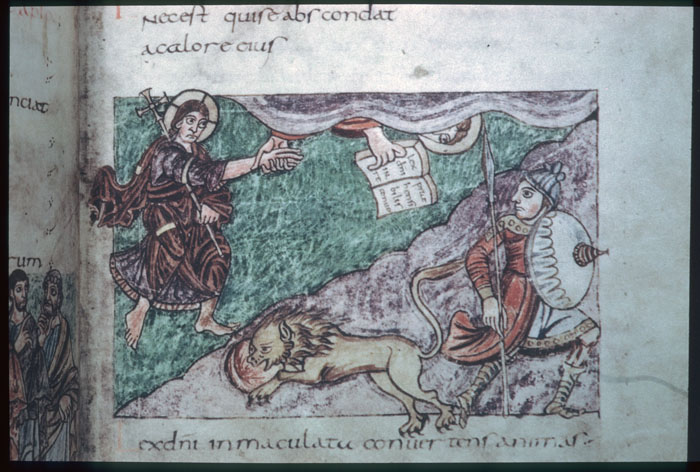 Necest quise abscondat
acalore eius
nciat
rum
Lex
exdni inmaculatu conuertens animas